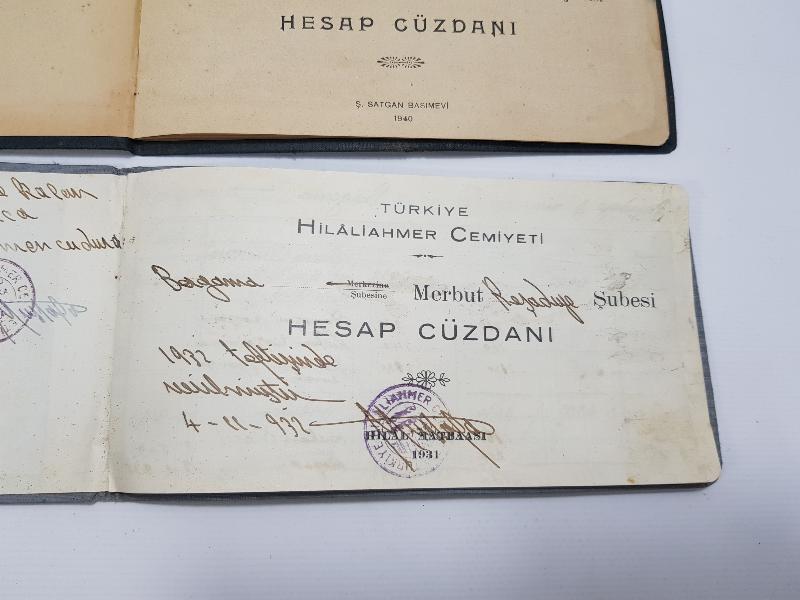 HESAP CÜZDANI
Ş. SATGAN BASIMEVİ
1940
e kalan
TÜRKİYE
HİLÂLİAHMER CEMİYETİ
Bergama Merkezine
Şubesine Merbut Reşadiye Şubesi
HESAP CÜZDANI
1932 teftişinde
verilmiştir
4-11-932
HİLÂL MATBAASI
1931